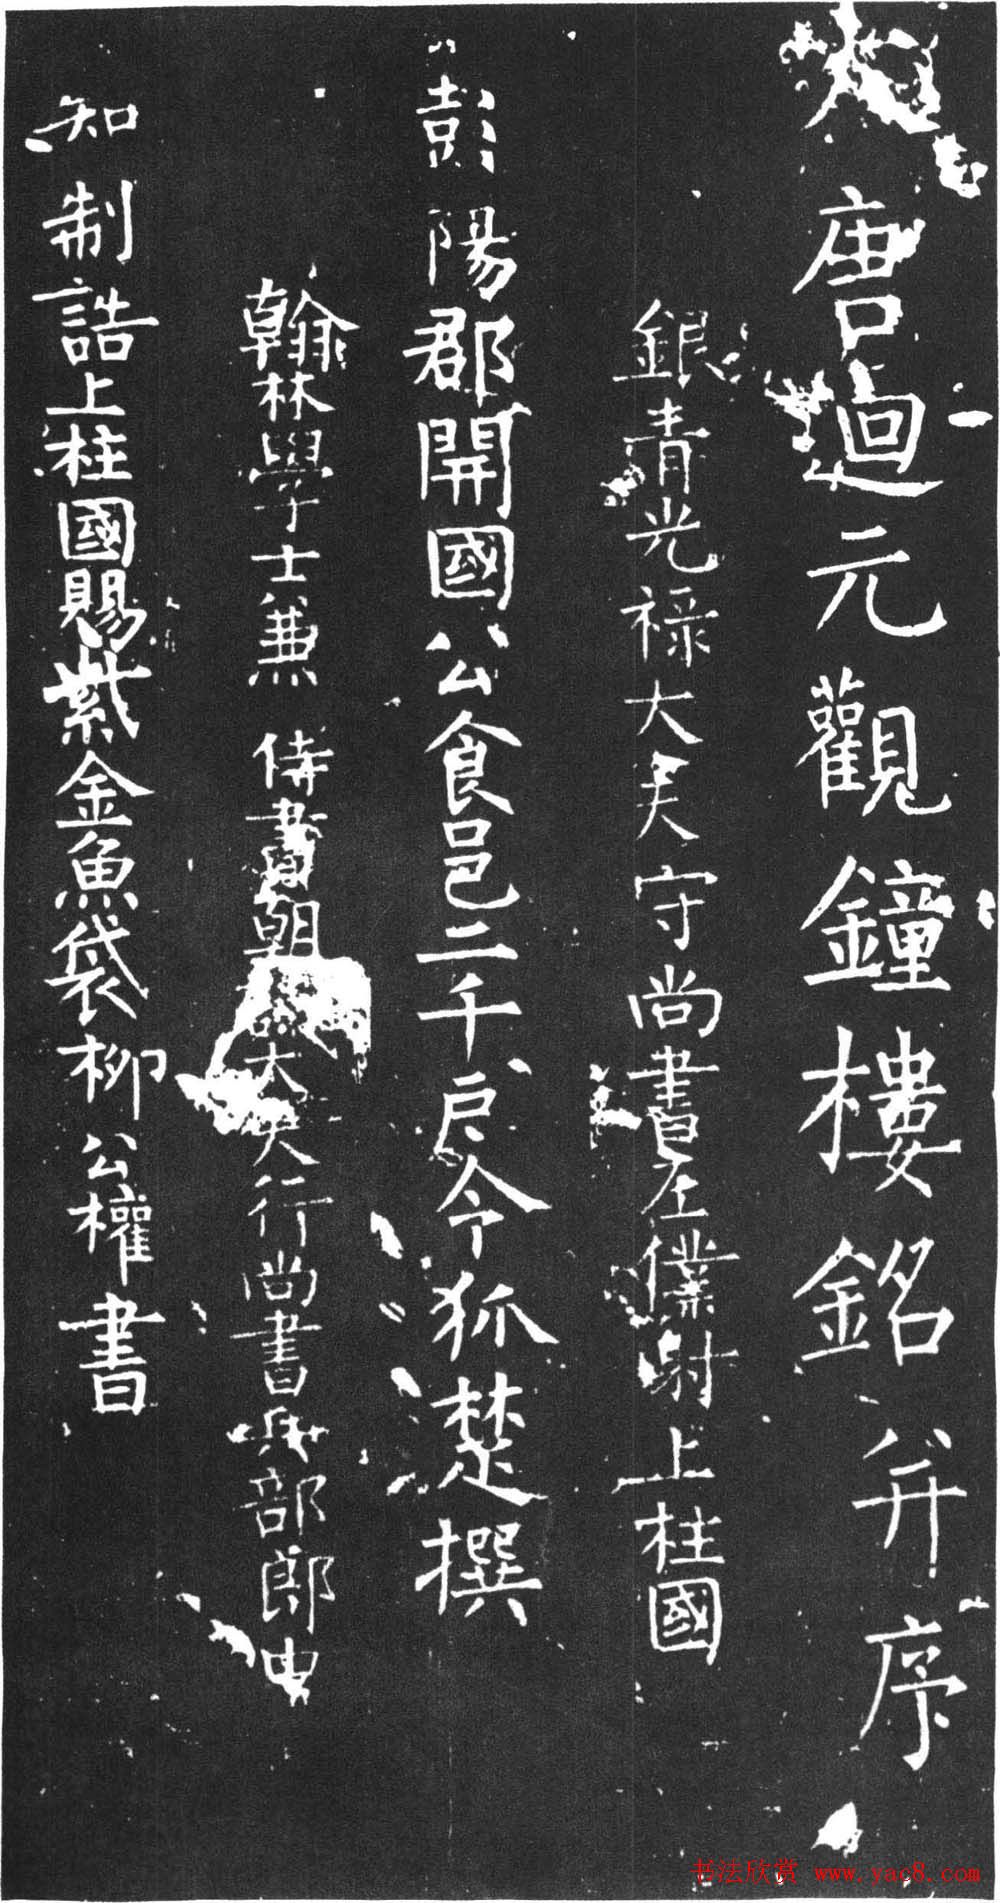 大唐迴元觀鐘樓銘并序
銀青光祿大夫守尚書左僕射上柱國
彭陽郡開國公食邑二千戶令狐楚撰
翰林學士兼侍書朝議大夫行尚書兵部郎中
知制誥上柱國賜紫金魚袋柳公權書
书法欣赏 www.yac8.com